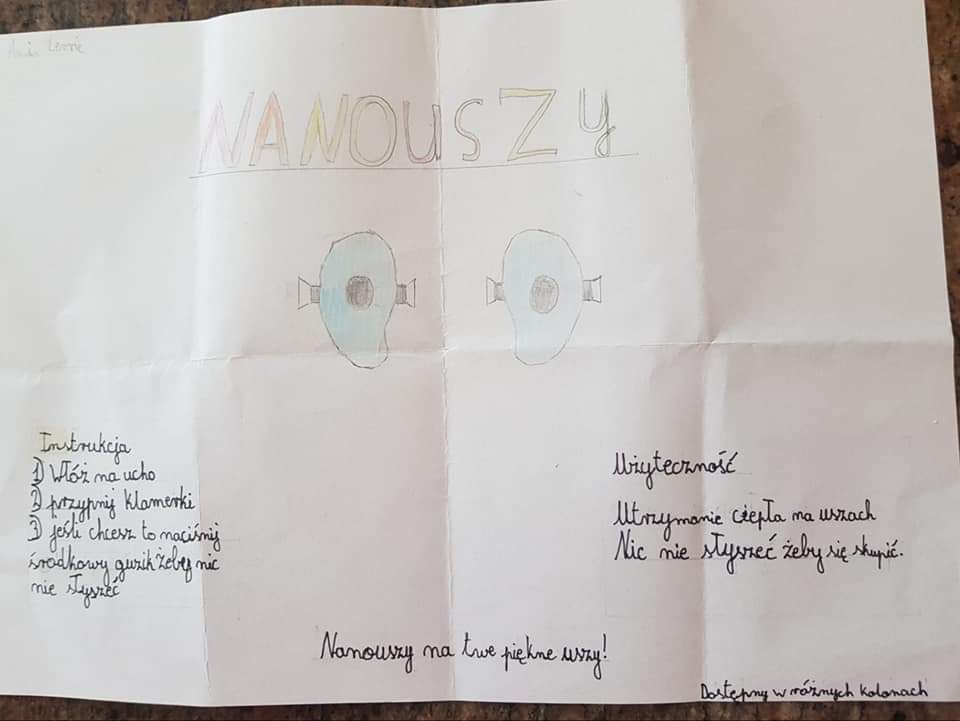 NANOUSZY
Instrukcja
1) Włóż na ucho
2) przypnij klamerki
3) jeśli chcesz to naciśnij
środkowy guzik żeby nic
nie słyszeć
Użyteczność
Utrzymanie ciepła na uszach
Nic nie słyszeć żeby się skupić.
Nanouszy na twe piękne uszy!
Dostępny w różnych kolorach